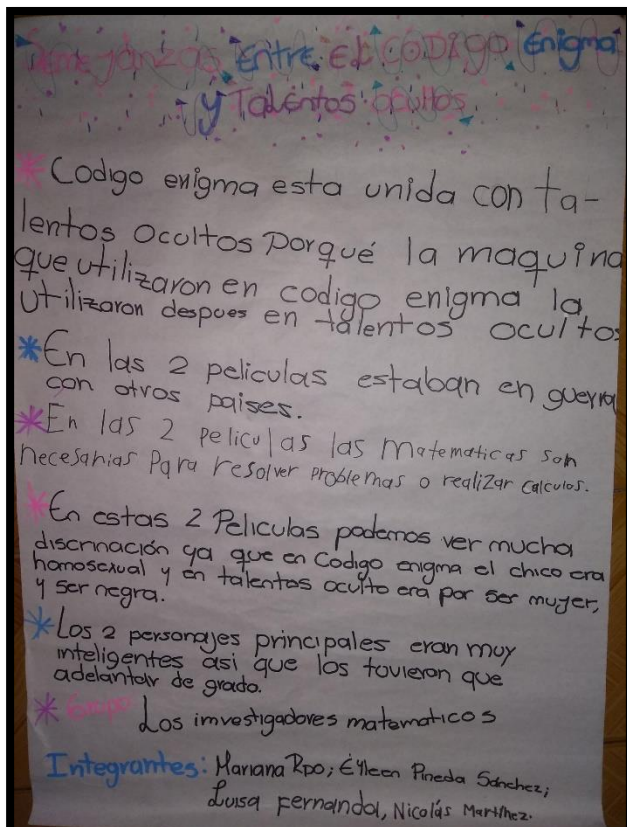 Semejanzas Entre El CODIGO Enigma
y Talentos ocultos
* Codigo enigma esta unida con ta-
lentos ocultos porqué la maquina
que utilizaron en codigo enigma la
utilizaron despues en talentos ocultos
* En las 2 peliculas estaban en guerra
con otros paises.
* En las 2 peliculas las matematicas son
necesarias para resolver problemas o realizar calculos.
* En estas 2 Peliculas podemos ver mucha
discrinación ya que en Codigo enigma el chico era
homosexual y en talentos oculto era por ser mujer,
y ser negra.
* Los 2 personajes principales eran muy
inteligentes asi que los tuvieron que
adelantar de grado.
* Grupo: Los imvestigadores matematicos
Integrantes: Mariana Rpo; Eylleen Pineda Sánchez;
Luisa Fernanda, Nicolás Martínez.